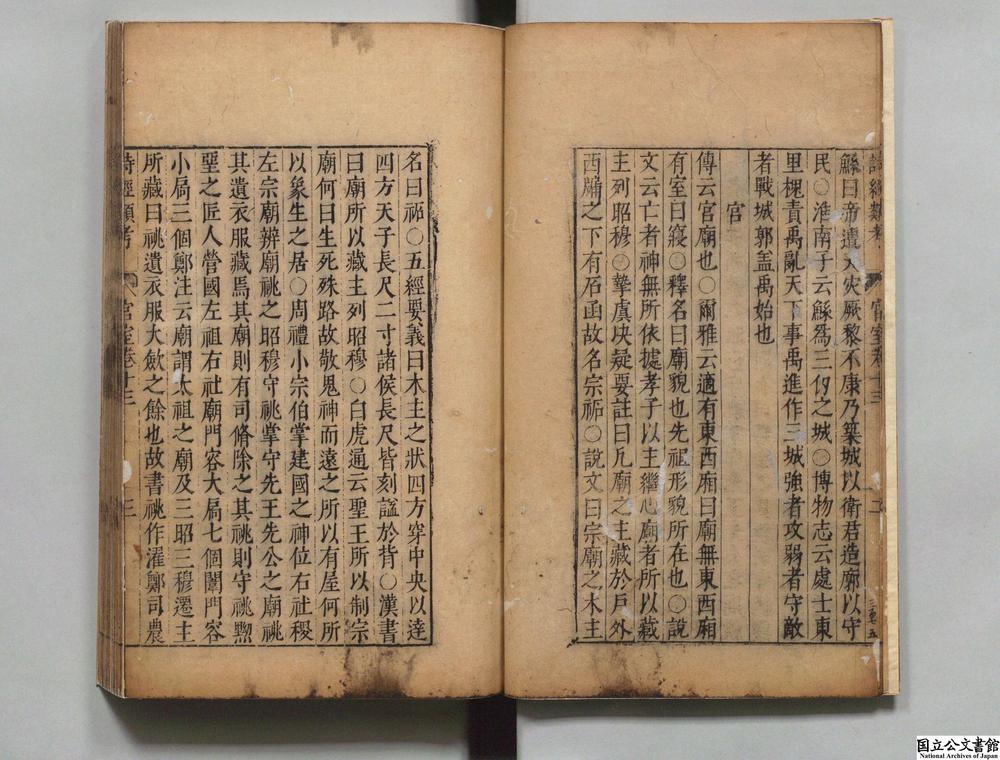 鯀曰帝遭天灾厥黎不康乃築城以衛君造廓以守
民○淮南子云鯀爲三仞之城○博物志云處士東
里槐責禹亂天下事禹進作三城強者攻弱者守敵
者戰城郭盖禹始也
宫
傳云宫廟也○爾雅云適有東西廂曰廟無東西廂
有室曰寢○釋名曰廟貌也先祖形貌所在也○説
文云亡者神無所依據孝子以主繼心廟者所以藏
主列昭穆○摯虞决疑要註曰凡廟之主藏於戶外
西牖之下有石函故名宗祏○説文曰宗廟之木主
名曰祏○五經要義曰木主之狀四方穿中央以達
四方天子長尺二寸諸侯長尺皆刻謚於背○漢書
曰廟所以藏主列昭穆○白虎通云聖王所以制宗
廟何曰生死殊路故敬鬼神而遠之所以有屋何所
以象生之居○周禮小宗伯掌建國之神位右社稷
左宗廟辨廟祧之昭穆守祧掌守先王先公之廟祧
其遺衣服藏焉其廟則有司脩除之其祧則守祧黝
堊之匠人營國左祖右社廟門容大扃七個闈門容
小扃三個鄭注云廟謂太祖之廟及三昭三穆遷主
所藏曰祧遺衣服大斂之餘也故書祧作濯鄭司農
詩經類考
宫室卷十三
三
國立公文書館
National Archives of Japan